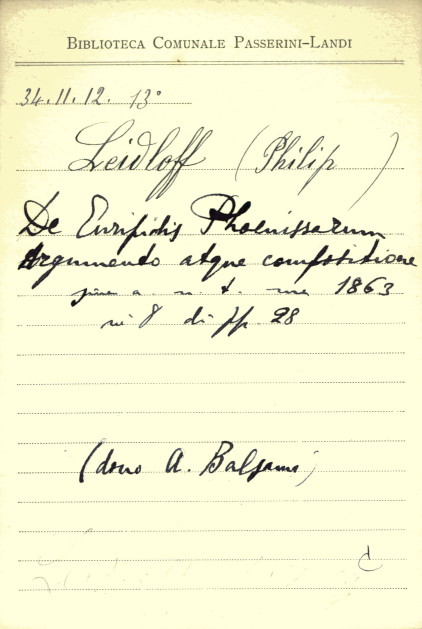 BIBLIOTECA COMUNALE PASSERINI-LANDI
34.11.12. 13°
Leidloff (Philip)
De Euripidis Phoenissarum
argumento atque compositione
sine a. n. t. ma 1863
in 8 di pp. 28
(dono A. Balsamo)
d